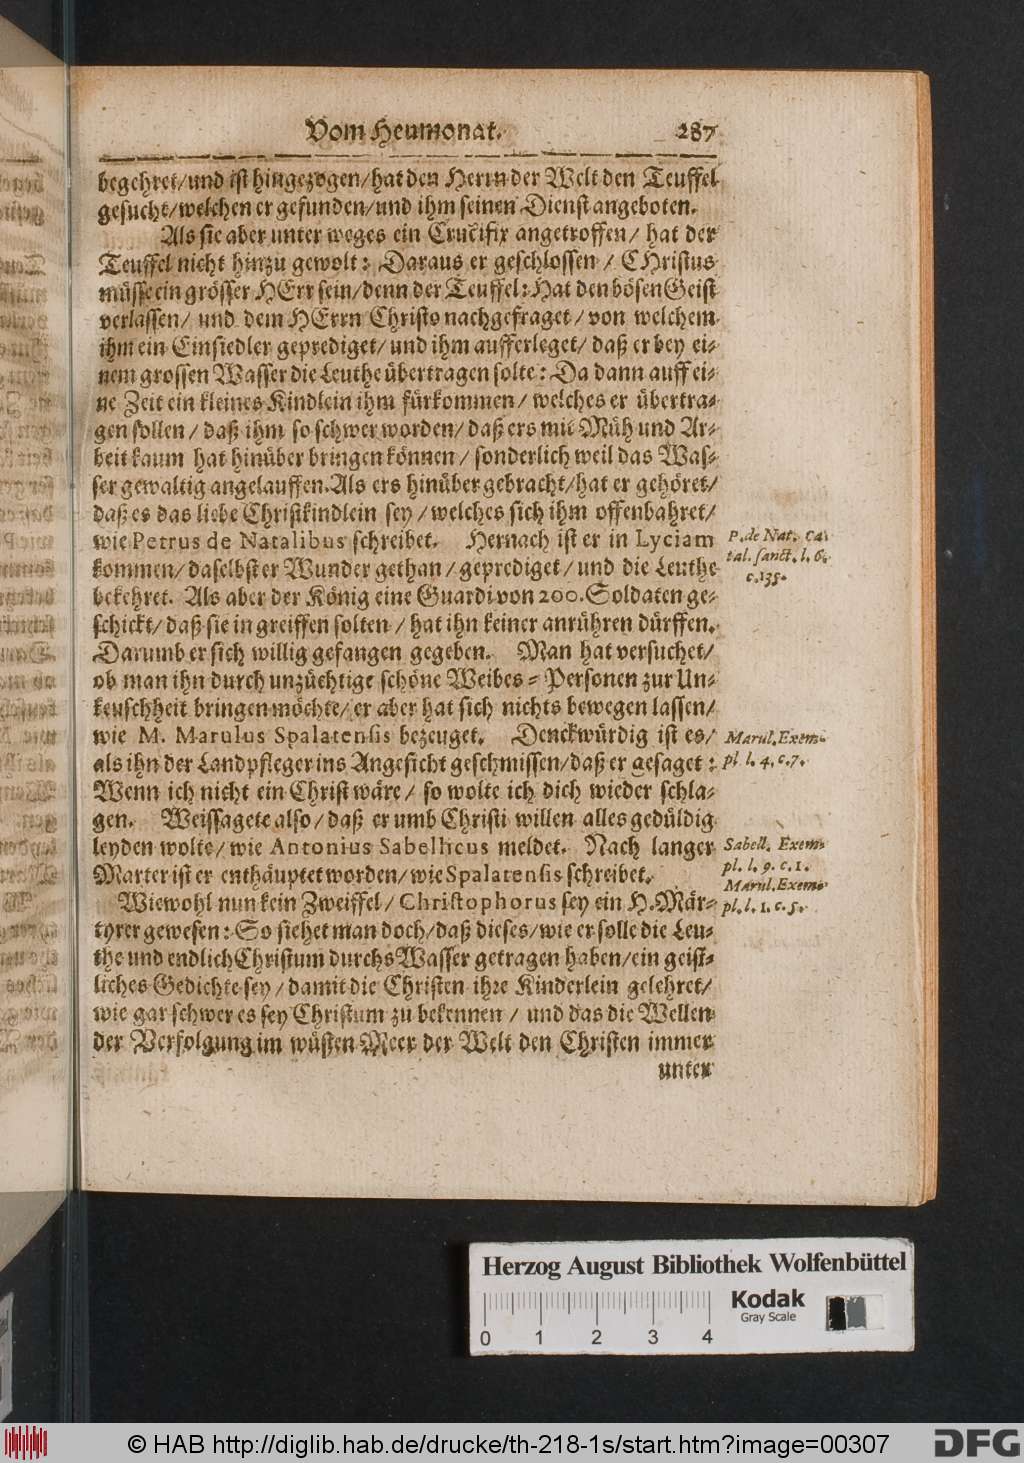 Vom Heumonat. 287
begehret/und ist hingezogen/hat den Herrn der Welt den Teuffel
gesucht/welchen er gefunden/und ihm seinen Dienst angeboten.
Als sie aber unter weges ein Crucifix angetroffen/ hat der
Teuffel nicht hinzu gewolt: Daraus er geschlossen / CHristus
müsse ein grösser HErr sein/denn der Teuffel: Hat den bösen Geist
verlassen/ und dem HErrn Christo nachgefraget/von welchem
ihm ein Einsiedler geprediget/und ihm aufferleget/ daß er bey ei-
nem grossen Wasser die Leuthe übertragen solte: Da dann auff ei-
ne Zeit ein kleines Kindlein ihm fürkommen/ welches er übertra-
gen sollen/ daß ihm so schwer worden/ daß ers mit Müh und Ar-
beit kaum hat hinüber bringen können/ sonderlich weil das Was-
ser gewaltig angelauffen. Als ers hinüber gebracht/hat er gehöret/
daß es das liebe Christkindlein sey/welches sich ihm offenbahret/
wie Petrus de Natalibus schreibet. Hernach ist er in Lyciam
kommen/daselbst er Wunder gethan/geprediget/und die Leuthe
bekehret. Als aber der König eine Guardi von 200. Soldaten ge-
schickt/daß sie in greiffen solten/ hat ihn keiner anrühren dürffen.
Darumb er sich willig gefangen gegeben. Man hat versuchet/
ob man ihn durch unzüchtige schöne Weibes-Personen zur Un-
keuschheit bringen möchte/er aber hat sich nichts bewegen lassen/
wie M. Marulus Spalatensis bezeuget. Denckwürdig ist es/
als ihn der Landpfleger ins Angesicht geschmissen/daß er gesaget:
Wenn ich nicht ein Christ wäre/ so wolte ich dich wieder schla-
gen. Weissagete also/daß er umb Christi willen alles gedüldig
leyden wolte/wie Antonius Sabellicus meldet. Nach langer
Marter ist er enthäuptet worden/wie Spalatensis schreibet.
Wiewohl nun kein Zweiffel/Christophorus sey ein H. Mär-
tyrer gewesen: So siehet man doch/daß dieses/wie er solle die Leu-
the und endlich Christum durchs Wasser getragen haben/ein geist-
liches Gedichte sey/damit die Christen ihre Kinderlein gelehret/
wie gar schwer es sey Christum zu bekennen / und das die Wellen
der Verfolgung im wüsten Meer der Welt den Christen immer
unter
P. de Nat. Ca-
tal. sanct. l. 6.
c. 135.
Marul. Exem-
pl. l. 4. c. 7.
Sabell. Exem-
pl. l. 9. c. 1.
Marul. Exem-
pl. l. 1. c. 5.
Herzog August Bibliothek Wolfenbüttel
Kodak
Gray Scale
0 1 2 3 4
© HAB http://diglib.hab.de/drucke/th-218-1s/start.htm?image=00307
DFG